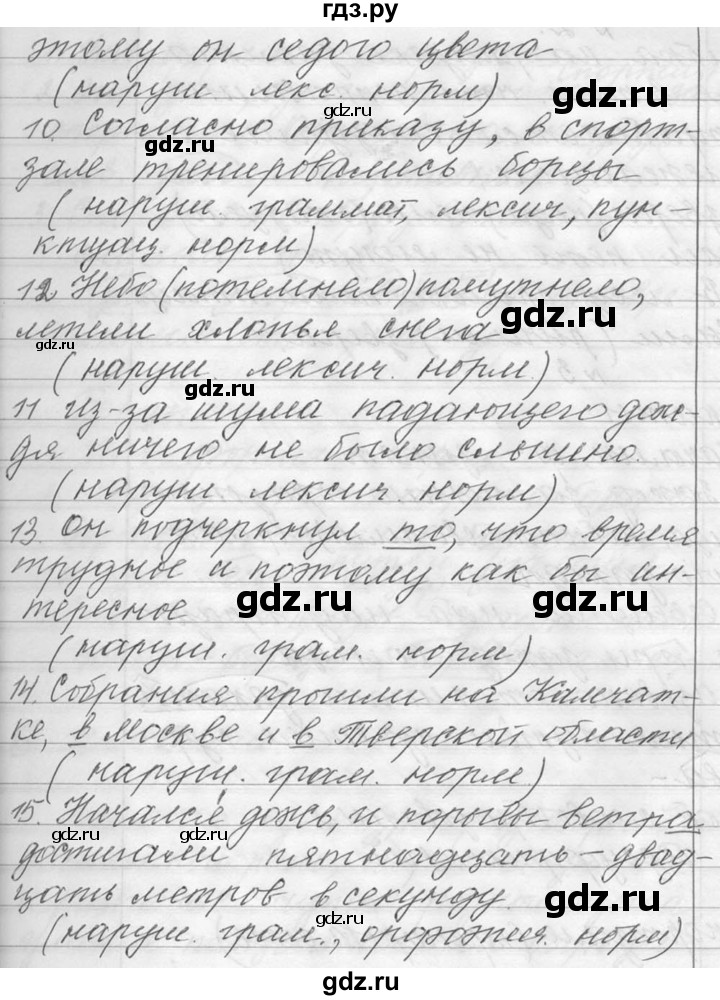 гдз.ру
этому он седого цвета
(наруш лекс. норм)
gdz.ru
gdz.ru
10. Согласно приказу, в спорт-
gdz.ru
зале тренировались борцы
(наруш. граммат, лексич, пун-
ктуац. норм)
gdz.ru
gdz.ru
12 Небо (потемнело) помутнело,
летели хлопья снега
gdz.ru
gdz.ru
(наруш. лексич. норм.)
gdz.ru
11 из-за шума падающего дож-
дя ничего не было слышно.
(наруш лексич. норм)
13. он подчеркнул то, что время
трудное и поэтому как бы ин-
тересное
gdz.ru
gdz.ru
(наруш. грам. норм)
14. Собрания прошли на Камчат-
ке, в Москве и в Тверской области
gdz.ru
gdz.ru
(наруш. грам. норм)
15. Начался дождь, и порывы ветра
gdz.ru
gdz.ru
достигали пятнадцать - двад-
цать метров в секунду.
gdz.ru
gdz.ru
(наруш. грам., орфоэпия. норм)
gdz.ru